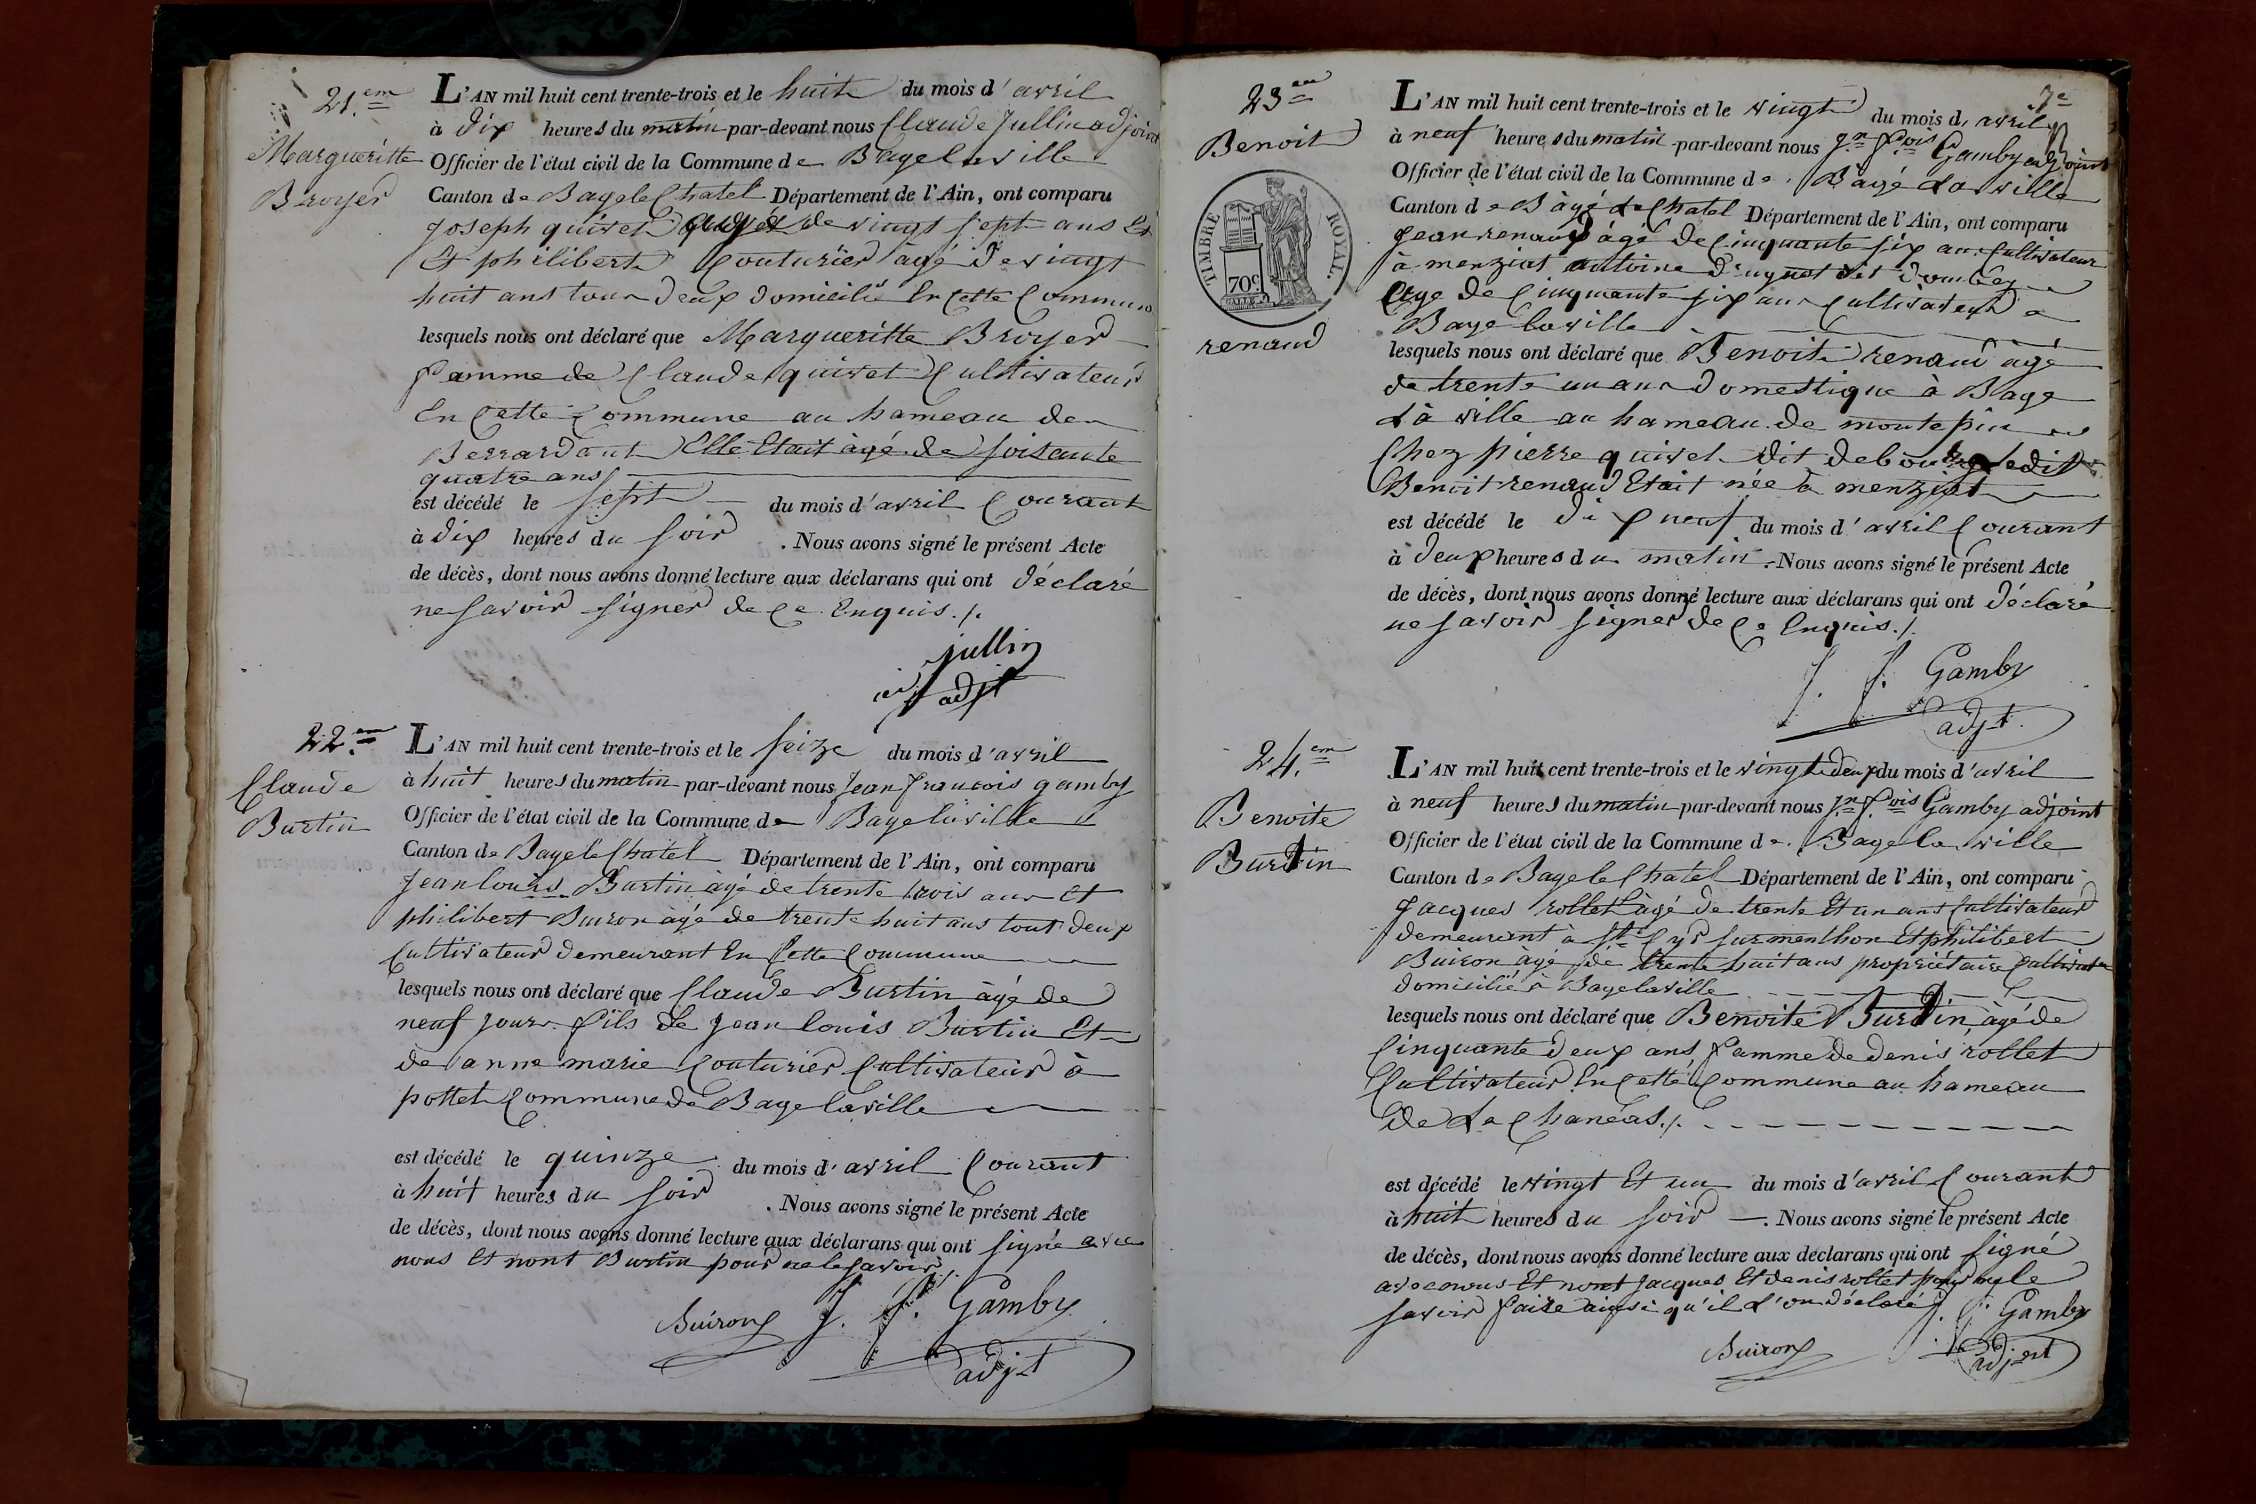 21.em
Margueritte
Broyer
L'AN mil huit cent trente-trois et le huit du mois d'avril
à dix heures du matin par-devant nous Claude Jullin adjoint
Officier de l'état civil de la Commune de Bagelaville
Canton de Bagele Chatel Département de l'Ain, ont comparu
Joseph quivet agé de vingt sept ans Et
Et philibert Couturier àgé de vingt
huit ans tous deux domicilié En Cette Commune
lesquels nous ont déclaré que Margueritte Broyer
famme de Claude quivet Cultivateur
En Cette Commune au hameau de
Berrardant Elle Etait àgé de soisante
quatre ans
est décédé le sept du mois d'avril Courant
à dix heures du soir . Nous avons signé le présent Acte
de décès, dont nous avons donné lecture aux déclarans qui ont déclaré
ne savoir signer de Ce Enquis ./.
jullin
adjt
22.em
Claude
Burtin
L'AN mil huit cent trente-trois et le seize du mois d'avril
à huit heures du matin par-devant nous Jean francois gamby
Officier de l'état civil de la Commune de Bagelaville
Canton de Bagele Chatel Département de l'Ain, ont comparu
Jean louis Burtin àgé de trente trois ans Et
philibert Buiron àgé de trente huit ans tout deux
Cultivateur demeurant En Cette Commune
lesquels nous ont déclaré que Claude Burtin àgé de
neuf jours fils de Jean louis Burtin Et
de anne marie Couturier Cultivateur à
pottet Commune de Bagelaville
est décédé le quinze du mois d'avril Courant
à huit heures du soir . Nous avons signé le présent Acte
de décès, dont nous avons donné lecture aux déclarans qui ont signé avec
nous Et nont Burtin pour ne le savoir ./.
Buiron J. f. Gamby
adjt
7e
23em
Benoit
TIMBRE ROYAL.
70c
renaud
L'AN mil huit cent trente-trois et le vingt du mois d'avril
à neuf heures du matin par-devant nous Jn fois Gamby adjoint
Officier de l'état civil de la Commune de Bagé La ville
Canton de Bàgé Le Chatel Département de l'Ain, ont comparu
Jean renaud àgé de Cinquante six ans Cultivateur
à menziat antoine druguet dit
age de Cinquante six ans Cultivateur a
Bage laville
lesquels nous ont déclaré que Benoit renaud àgé
de trente un ans domestique à Bage
La ville au hameau de montepin
Chez pierre quivet dit ledit
Benoit renaud Etait née à menziat
est décédé le dix neuf du mois d'avril Courant
à deux heures du matin . Nous avons signé le présent Acte
de décès, dont nous avons donné lecture aux déclarans qui ont déclaré
ne savoir signer de Ce Enquis ./.
J. f. Gamby
adjt.
24.em
Benoite
Burdin
L'AN mil huit cent trente-trois et le vingt deux du mois d'avril
à neuf heures du matin par-devant nous Jn fois Gamby adjoint
Officier de l'état civil de la Commune de Bage la ville
Canton de Bagele Chatel Département de l'Ain, ont comparu
Jacques rollet àgé de trente Et un ans Cultivateur
demeurant à St Cyr sur menthon Et philibert
Buiron àge de trente huit ans propriétaire Cultivateur
domicilié à Bagelaville
lesquels nous ont déclaré que Benoite Burdin, àgé de
Cinquante deux ans, famme de denis rollet
Cultivateur En Cette Commune au hameau
de Le Chanéas ./.
est décédé le vingt Et un du mois d'avril Courant
à huit heures du soir . Nous avons signé le présent Acte
de décès, dont nous avons donné lecture aux déclarans qui ont signé
avec nous Et nont Jacques Et denis rollet pour ne le
savoir faire ainsi qu'il L'on déclaré J. f. Gamby
Buiron adjt